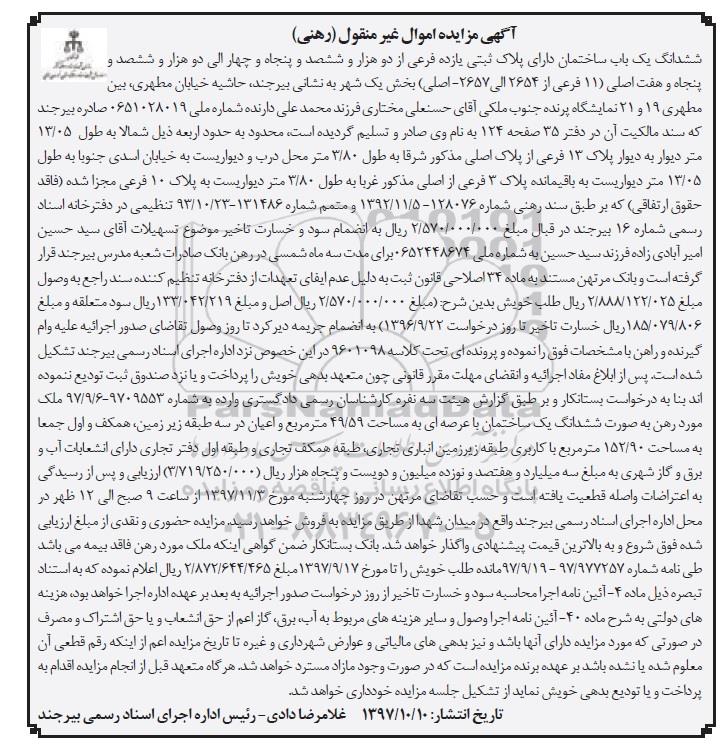 آگهی مزایده اموال غیر منقول (رهنی)
ششدانگ یک باب ساختمان دارای پلاک ثبتی یازده فرعی از دو هزار و ششصد و پنجاه و چهار الی دو هزار و ششصد و
پنجاه و هفت اصلی (۱۱ فرعی از ۲۶۵۴ الی۲۶۵۷- اصلی) بخش یک شهر به نشانی بیرجند، حاشیه خیابان مطهری، بین
مطهری ۱۹ و ۲۱ نمایشگاه پرنده جنوب ملکی آقای حسنعلی مختاری فرزند محمد علی دارنده شماره ملی ۰۶۵۱۰۲۸۰۱۹ صادره بیرجند
که سند مالکیت آن در دفتر ۳۵ صفحه ۱۲۴ به نام وی صادر و تسلیم گردیده است، محدود به حدود اربعه ذیل شمالا به طول ۱۳/۰۵
متر دیوار به دیوار پلاک ۱۳ فرعی از پلاک اصلی مذکور شرقا به طول ۳/۸۰ متر محل درب و دیواریست به خیابان اسدی جنوبا به طول
۱۳/۰۵ متر دیواریست به باقیمانده پلاک ۳ فرعی از اصلی مذکور غربا به طول ۳/۸۰ متر دیواریست به پلاک ۱۰ فرعی مجزا شده (فاقد
حقوق ارتفاقی) که بر طبق سند رهنی شماره ۱۲۸۰۷۶-۱۳۹۲/۱۱/۵ و متمم شماره ۱۳۱۴۸۶-۹۳/۱۰/۲۳ تنظیمی در دفترخانه اسناد
رسمی شماره ۱۶ بیرجند در قبال مبلغ ۲/۵۷۰/۰۰۰/۰۰۰ ریال به انضمام سود و خسارت تاخیر موضوع تسهیلات آقای سید حسین
امیر آبادی زاده فرزند سید حسین به شماره ملی ۰۶۵۲۴۴۸۶۷۴برای مدت سه ماه شمسی در رهن بانک صادرات شعبه مدرس بیرجند قرار
گرفته است و بانک مرتهن مستند به ماده ۳۴ اصلاحی قانون ثبت به دلیل عدم ایفای تعهدات از دفترخانه تنظیم کننده سند راجع به وصول
مبلغ ۲/۸۸۸/۱۲۲/۰۲۵ ریال طلب خویش بدین شرح: (مبلغ ۲/۵۷۰/۰۰۰/۰۰۰ ریال اصل و مبلغ ۱۳۳/۰۴۲/۲۱۹ریال سود متعلقه و مبلغ
۱۸۵/۰۷۹/۸۰۶ریال خسارت تاخیر تا روز درخواست ۱۳۹۶/۹/۲۲) به انضمام جریمه دیرکرد تا روز وصول تقاضای صدور اجرائیه علیه وام
گیرنده و راهن با مشخصات فوق را نموده و پرونده ای تحت کلاسه ۹۶۰۱۰۹۸ در این خصوص نزد اداره اجرای اسناد رسمی بیرجند تشکیل
شده است. پس از ابلاغ مفاد اجرائیه و انقضای مهلت مقرر قانونی چون متعهد بدهی خویش را پرداخت و یا نزد صندوق ثبت تودیع ننموده
اند بنا به درخواست بستانکار و بر طبق گزارش هیئت سه نفره کارشناسان رسمی دادگستری وارده به شماره ۹۷۰۹۵۵۳-۹۷/۹/۶ ملک
مورد رهن به صورت ششدانگ یک ساختمان با عرصه ای به مساحت ۴۹/۵۹ مترمربع و اعیان در سه طبقه زیر زمین، همکف و اول جمعا
به مساحت ۱۵۲/۹۰ مترمربع با کاربری طبقه زیرزمین انباری تجاری، طبقه همکف تجاری و طبقه اول دفتر تجاری دارای انشعابات آب و
برق و گاز شهری به مبلغ سه میلیارد و هفتصد و نوزده میلیون و دویست و پنجاه هزار ریال (۳/۷۱۹/۲۵۰/۰۰۰) ارزیابی و پس از رسیدگی
به اعتراضات واصله قطعیت یافته است و حسب تقاضای مرتهن در روز چهارشنبه مورخ ۱۳۹۷/۱۱/۳ از ساعت ۹ صبح الی ۱۲ ظهر در
محل اداره اجرای اسناد رسمی بیرجند واقع در میدان شهدا از طریق مزایده به فروش خواهد رسید. مزایده حضوری و نقدی از مبلغ ارزیابی
شده فوق شروع و به بالاترین قیمت پیشنهادی واگذار خواهد شد. بانک بستانکار ضمن گواهی اینکه ملک مورد رهن فاقد بیمه می باشد
طی نامه شماره ۹۷/۹۷۷۲۵۷ - ۹۷/۹/۱۹مانده طلب خویش را تا مورخ ۱۳۹۷/۹/۱۷مبلغ ۲/۸۷۲/۶۴۴/۴۶۵ ریال اعلام نموده که به استناد
تبصره ذیل ماده ۴- آئین نامه اجرا محاسبه سود و خسارت تاخیر از روز درخواست صدور اجرائیه به بعد بر عهده اداره اجرا خواهد بود، هزینه
های دولتی به شرح ماده ۴۰- آئین نامه اجرا وصول و سایر هزینه های مربوط به آب، برق، گاز اعم از حق انشعاب و یا حق اشتراک و مصرف
در صورتی که مورد مزایده دارای آنها باشد و نیز بدهی های مالیاتی و عوارض شهرداری و غیره تا تاریخ مزایده اعم از اینکه رقم قطعی آن
معلوم شده یا نشده باشد بر عهده برنده مزایده است که در صورت وجود مازاد مسترد خواهد شد. هرگاه متعهد قبل از انجام مزایده اقدام به
پرداخت و یا تودیع بدهی خویش نماید از تشکیل جلسه مزایده خودداری خواهد شد.
تاریخ انتشار: ۱۳۹۷/۱۰/۱۰ غلامرضا دادی- رئیس اداره اجرای اسناد رسمی بیرجند
ParsNamadData
پایگاه اطلاع رسانی مناقصه و مزایده
۰۲۱-۸۸۳۴۹۶۷۰-۵